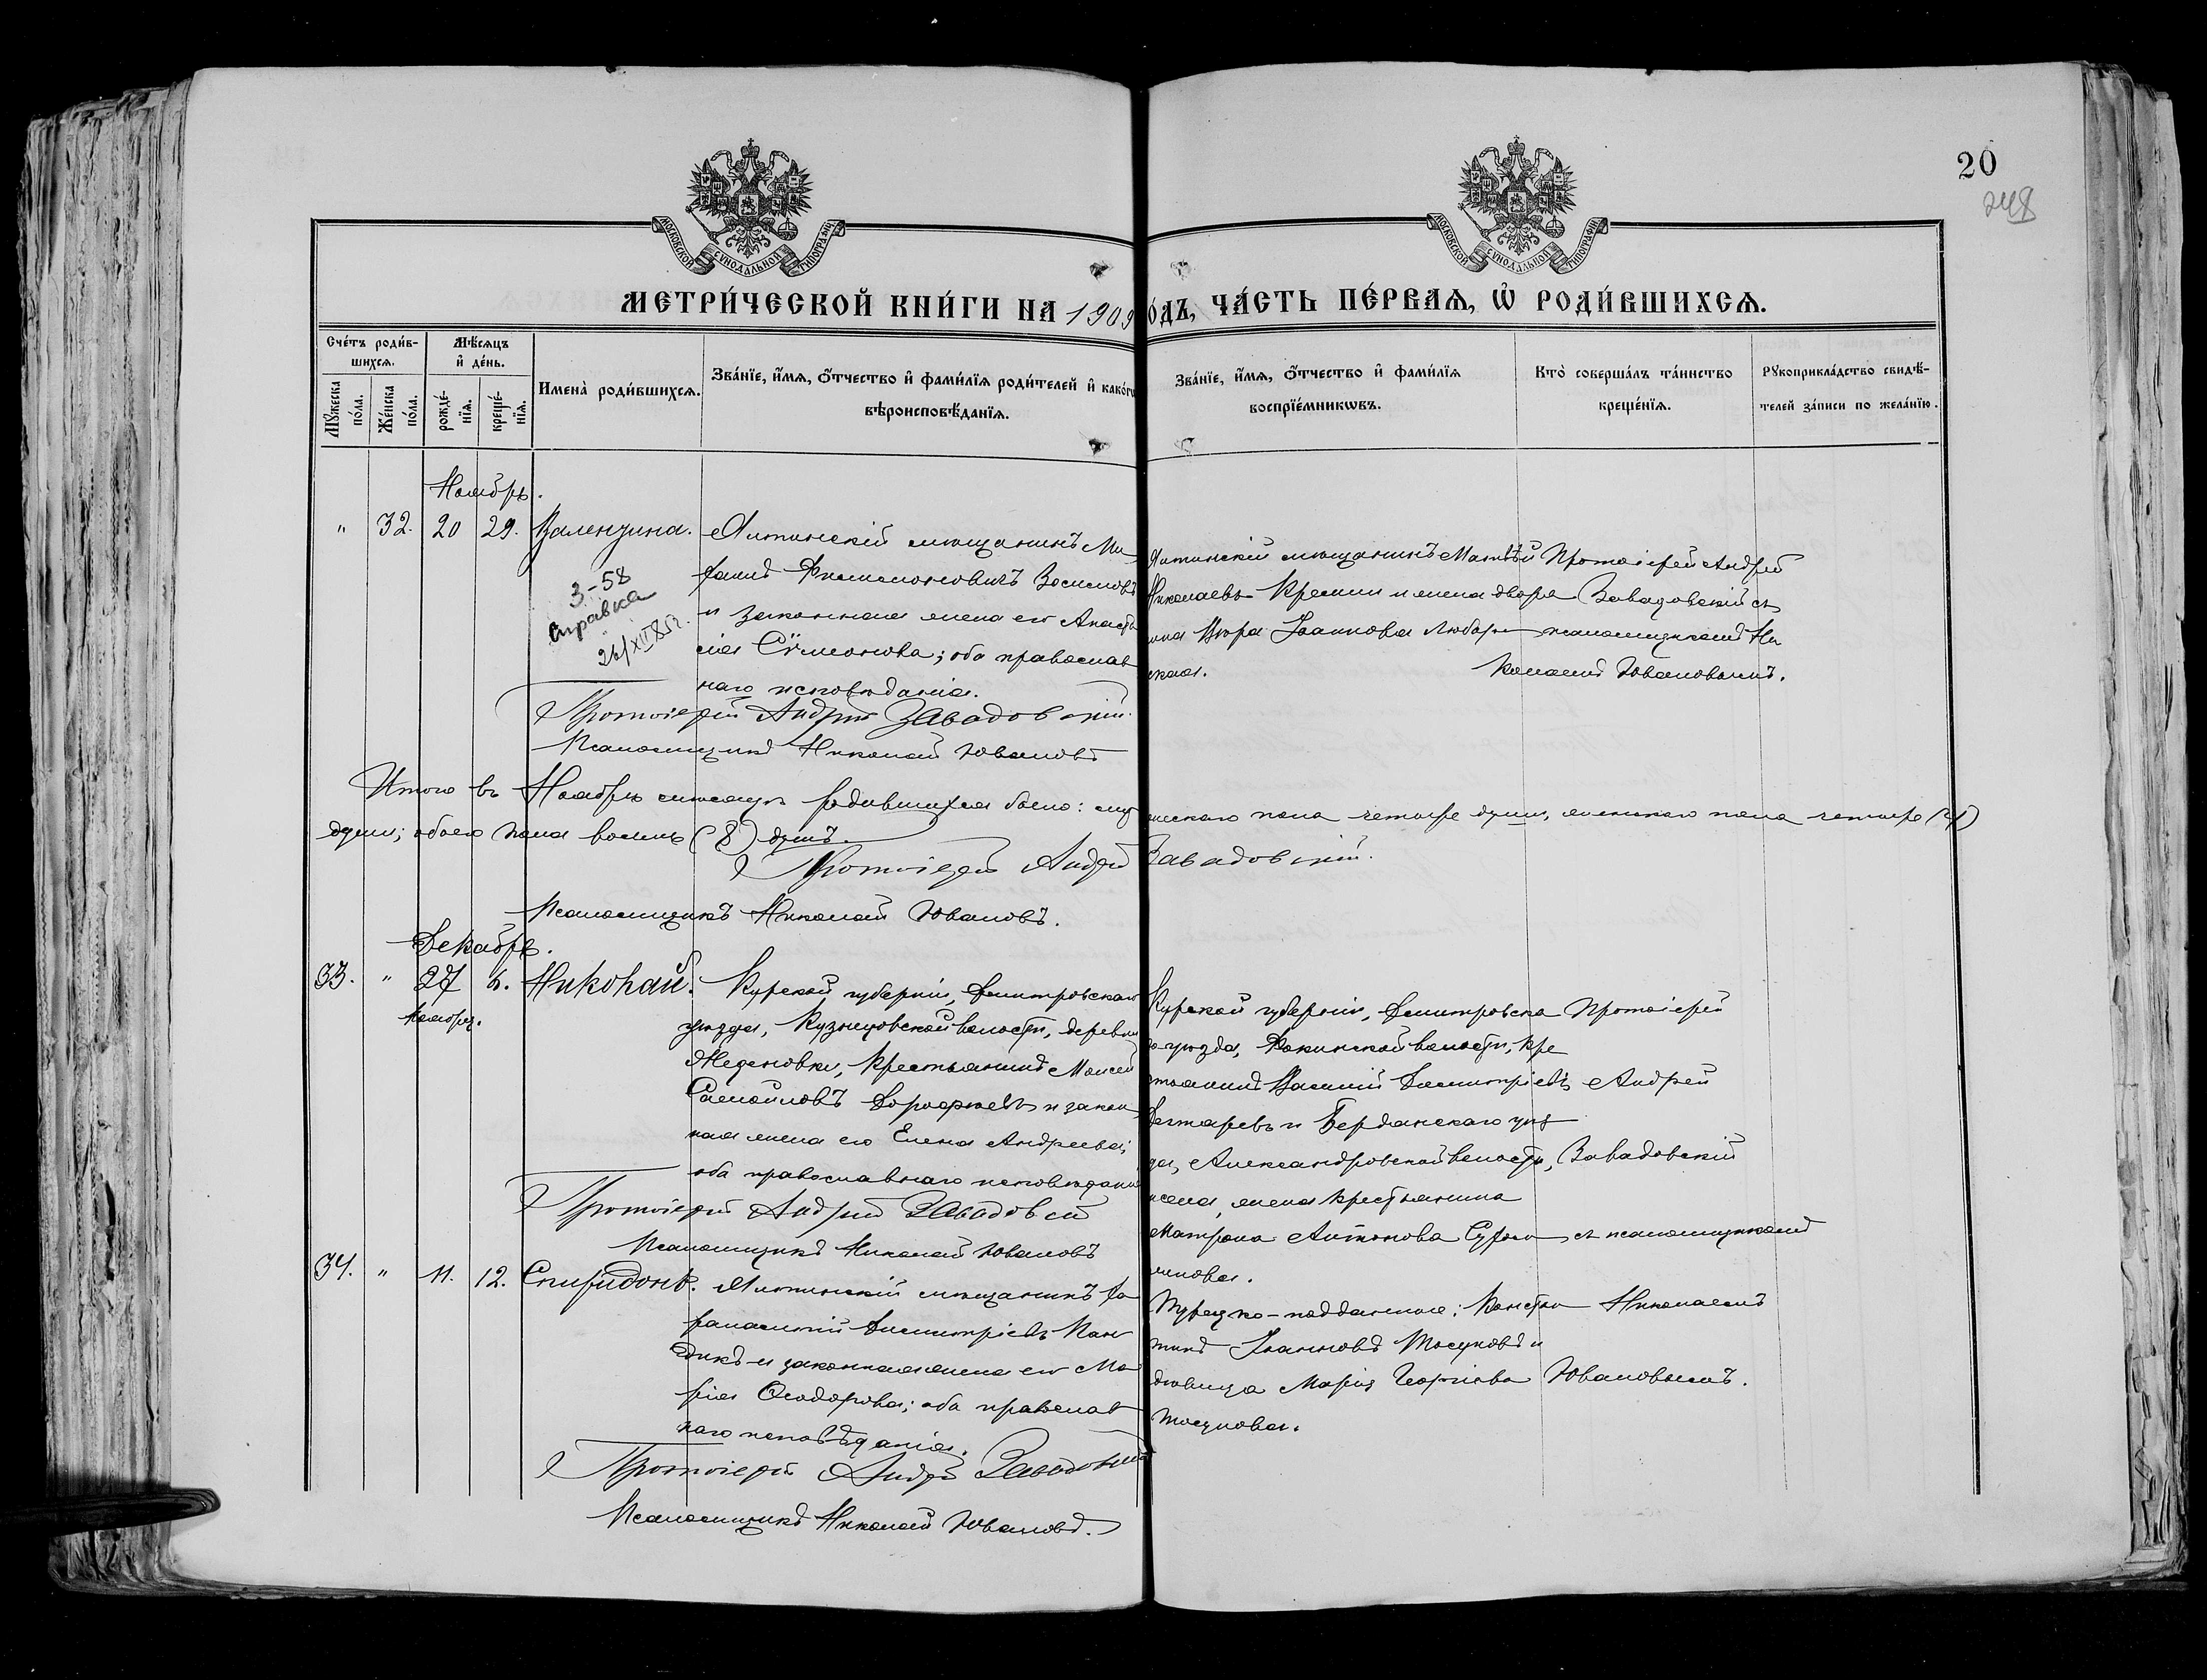 20
248
МОСКОВСКОЙ СѴНОДАЛЬНОЙ ТИПОГРАФІИ
МОСКОВСКОЙ СѴНОДАЛЬНОЙ ТИПОГРАФІИ
МЕТРИ́ЧЕСКОЙ КНИ́ГИ НА 1909
О́ДЪ, ЧА́СТЬ ПЕ́РВАѦ, Ѡ҆ РОДИ́ВШИХСѦ.
Сче́тъ роди́в-
шихсѧ.
Мѣ́сѧцъ
и҆ де́нь.
Мꙋ́жеска
по́ла.
Же́нска
по́ла.
рожде́-
нїѧ.
креще́-
нїѧ.
Имена̀ роди́вшихсѧ.
Зва́нїе, и҆́мѧ, ѻ҆́тчество и҆ фами́лїѧ роди́телей и҆ како́гѡ
вѣроисповѣ́данїѧ.
Зва́нїе, и҆́мѧ, ѻ҆́тчество и҆ фами́лїѧ
воспрїе́мникѡвъ.
Кто̀ соверша́лъ та́инство
креще́нїѧ.
Рꙋкоприкла́дство свидѣ́-
телей за́писи по жела́нїю.
Ноябрь.
" 32. 20 29. Валентина.
Ялтинскій мѣщанинъ Ми-
хаилъ Филимоновичъ Зосимовъ
и законная жена его Анаста
сія Сѵмеонова; оба православ
наго исповѣданія.
3-58
Справка
26/XII 85 г.
Ялтинскій мѣщанинъ Матѳѣй
Николаевъ и жена двора
нина Вѣра Іоаннова
ская.
Протоіерей Андрей
Завадовскій съ
псаломщикомъ Ни
колаемъ Юваловымъ.
Протоіерей Андрей Завадовскій.
Псаломщикъ Николай Юваловъ
Итого въ Ноябрѣ мѣсяцѣ родившихся было: муж
ескаго пола четыре души, женскаго пола четыре (4)
души; обоего пола восемь (8) душъ.
Протоіерей Андрей Завадовскій.
Псаломщикъ Николай Юваловъ.
Декабрь.
33. " 27 6. Николай.
Ноября.
Курской губерніи, Дмитровскаго
уѣзда, Кузнецовской волости, деревни
крестьянинъ Моисей
Самойловъ Дорофеевъ и закон
ная жена его Елена Андреева;
оба православнаго исповѣданія
Курской губерніи, Дмитровска
го уѣзда, волости, кре
стьянинъ Василій Димитріевъ
Дегтаревъ и Бердянскаго уѣз
да, Александровской волости,
жена крестьянина
Матрона Антонова
Протоіерей
Андрей
Завадовскій
съ псаломщикомъ
Николаемъ
Юваловымъ.
Протоіерей Андрей Завадовскій
Псаломщикъ Николай Юваловъ
34. " 11. 12. Спиридонъ.
Ялтинскій мѣщанинъ Ха
рлампій Димитріевъ
и законная жена его Ма
рія Ѳеодорова; оба православ
наго исповѣданія.
Турецко-подданные: Констан
тинъ Іоанновъ и
дѣвица Марія Георгіева
Протоіерей Андрей Завадовскій
Псаломщикъ Николай Юваловъ.